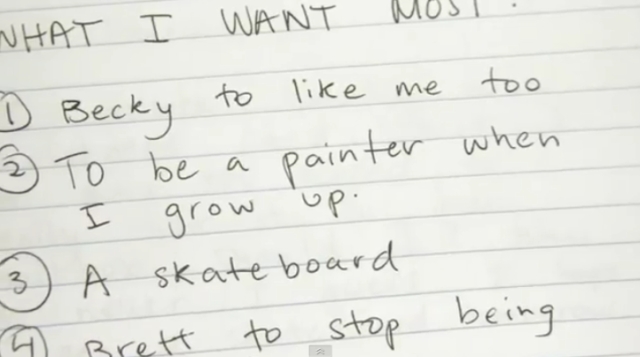 WHAT I WANT MOST.
1 Becky to like me too
2 To be a painter when
I grow up.
3 A skateboard
4 Brett to stop being